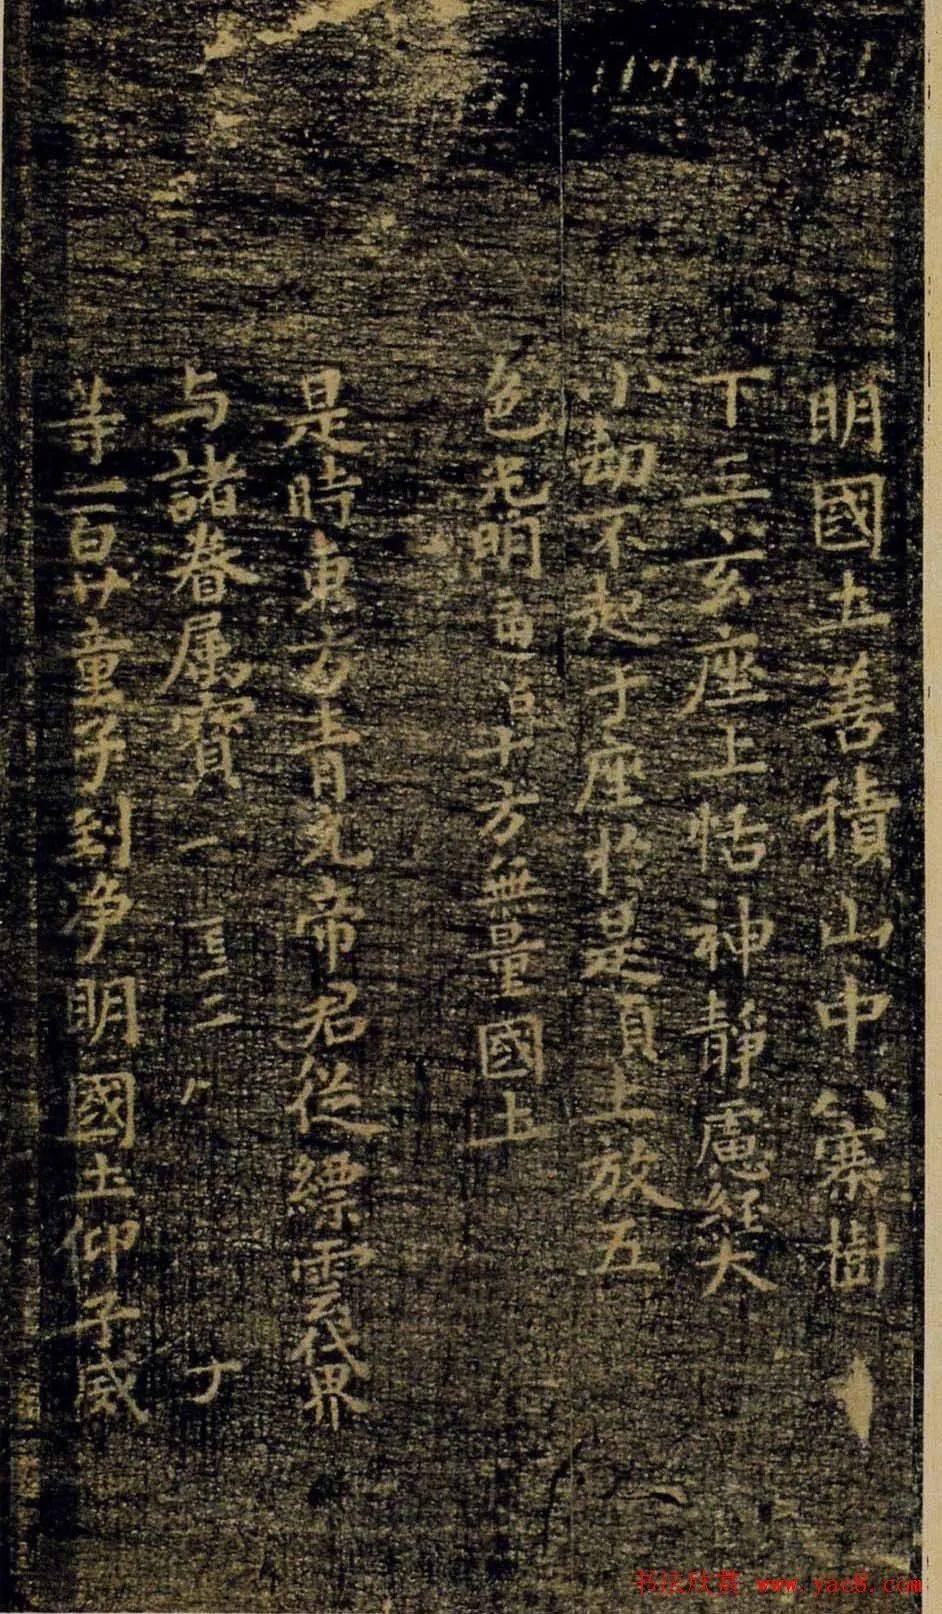 明國土善積山中八騫樹
下三玄座上恬神靜慮経大
小劫不起于座於是頂上放五
色光明十方無量國土
是時東方青元帝君從縹雲世界
与諸眷属寶
等一百廿童子到浄明國土仰子威
书法欣赏 www.yac8.com